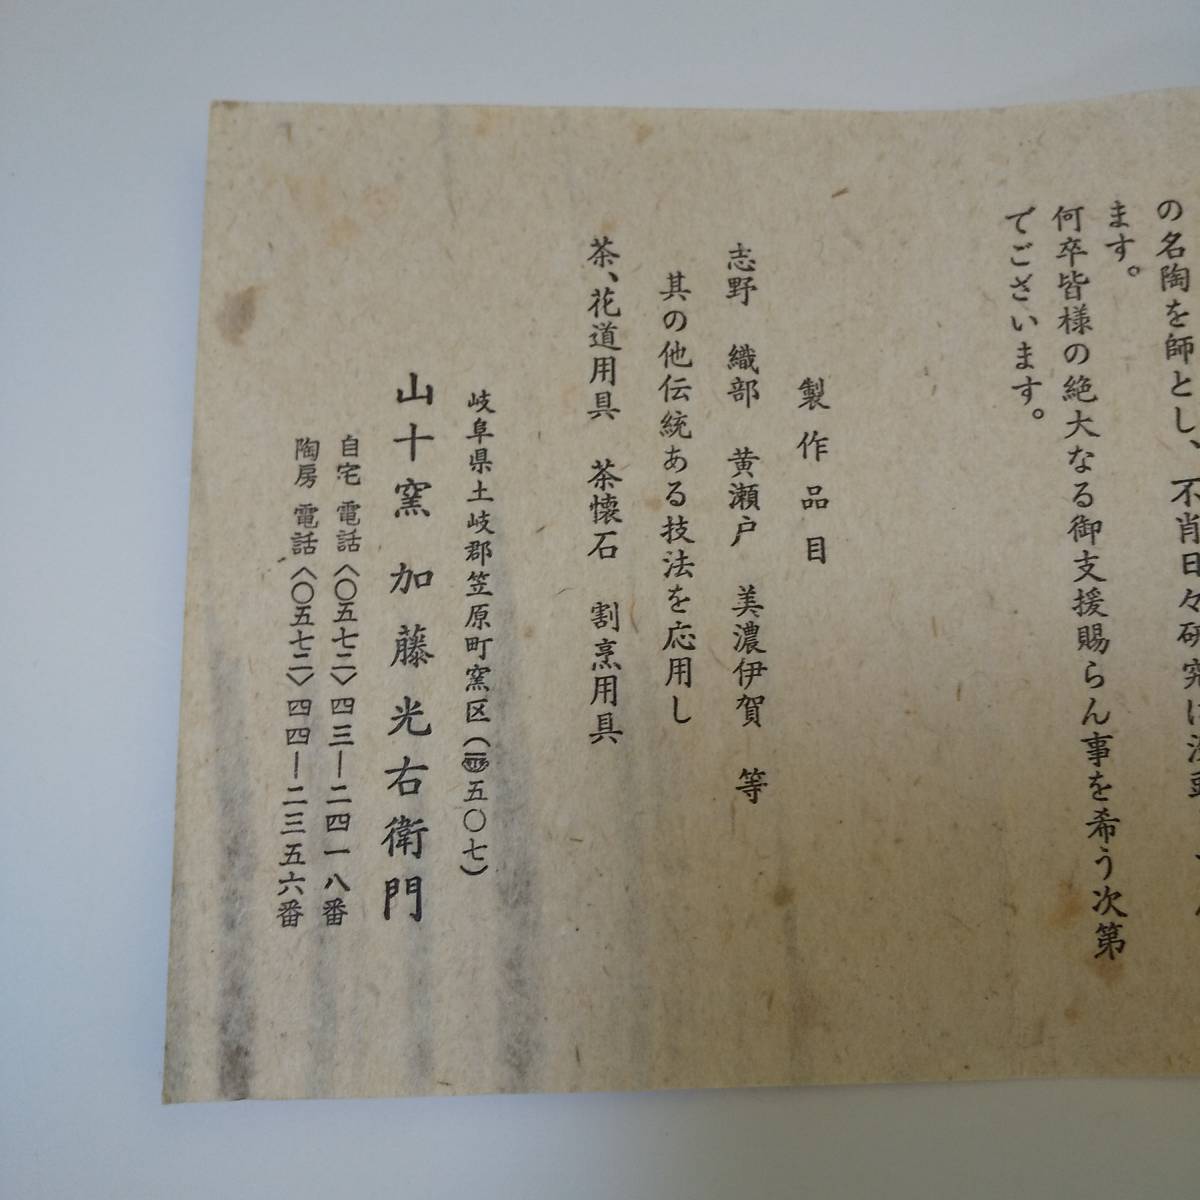 の名陶を師とし、不肖日々研究に没頭
ます。
何卒皆様の絶大なる御支援賜らん事を希う次第
でございます。
製作品目
志野　織部　黄瀬戸　美濃伊賀　等
其の他伝統ある技法を応用し
茶、花道用具　茶懐石　割烹用具
岐阜県土岐郡笠原町窯区（〒五〇七）
山十窯　加藤光右衛門
自宅　電話〈〇五七二〉四三ー二四一八番
陶房　電話〈〇五七二〉四四ー二三五六番